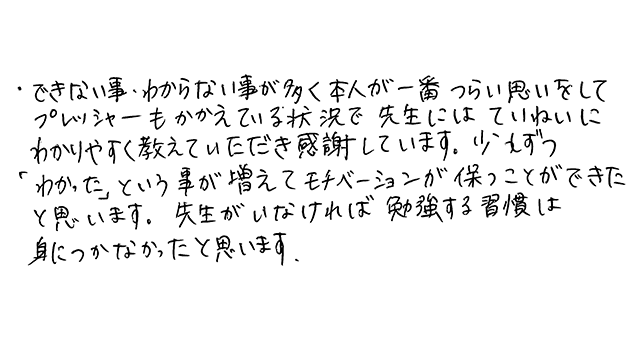 ・できない事・わからない事が多く本人が一番つらい思いをして
プレッシャーもかかえている状況で先生にはていねいに
わかりやすく教えていただき感謝しています。少しずつ
「わかった」という事が増えてモチベーションが保つことができた
と思います。先生がいなければ勉強する習慣は
身につかなかったと思います.